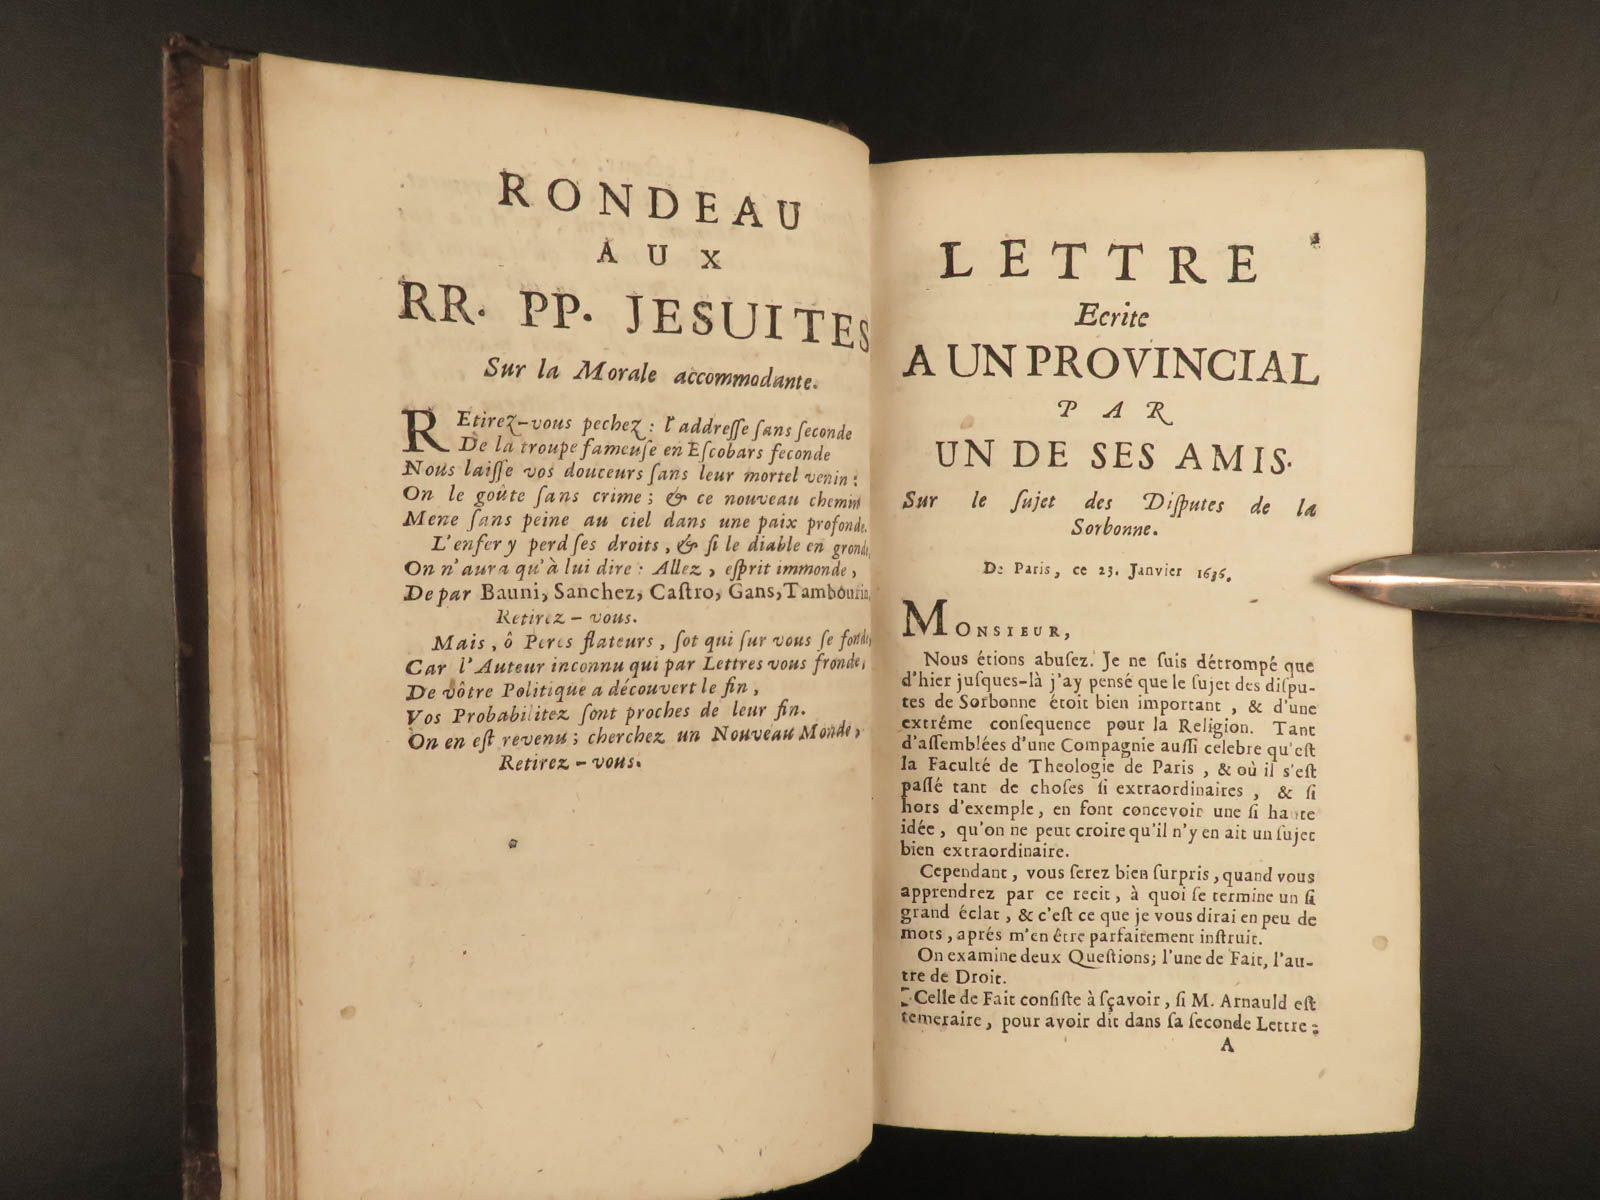 RONDEAU
AUX
RR. PP. JESUITES
Sur la Morale accommodante.
REtirez-vous pechez : l'addresse sans seconde
De la troupe fameuse en Escobars feconde
Nous laisse vos douceurs sans leur mortel venin :
On le goûte sans crime ; & ce nouveau chemin
Mene sans peine au ciel dans une paix profonde.
L'enfer y perd ses droits, & si le diable en gronde,
On n'aura qu'à lui dire : Allez, esprit immonde,
De par Bauni, Sanchez, Castro, Gans, Tambourin,
Retirez-vous.
Mais, ô Peres flateurs, sot qui sur vous se fonde,
Car l'Auteur inconnu qui par Lettres vous fronde,
De vôtre Politique a découvert le fin,
Vos Probabilitez sont proches de leur fin.
On en est revenu ; cherchez un Nouveau Monde,
Retirez-vous.
LETTRE
Ecrite
A UN PROVINCIAL
PAR
UN DE SES AMIS.
Sur le sujet des Disputes de la
Sorbonne.
De Paris, ce 23. Janvier 1656.
MONSIEUR,
Nous étions abusez. Je ne suis détrompé que
d'hier jusques-là j'ay pensé que le sujet des dispu-
tes de Sorbonne étoit bien important, & d'une
extréme consequence pour la Religion. Tant
d'assemblées d'une Compagnie aussi celebre qu'est
la Faculté de Theologie de Paris, & où il s'est
passé tant de choses si extraordinaires, & si
hors d'exemple, en font concevoir une si haute
idée, qu'on ne peut croire qu'il n'y en ait un sujet
bien extraordinaire.
Cependant, vous serez bien surpris, quand vous
apprendrez par ce recit, à quoi se termine un si
grand éclat, & c'est ce que je vous dirai en peu de
mots, aprés m'en être parfaitement instruit.
On examine deux Questions; l'une de Fait, l'au-
tre de Droit.
Celle de Fait consiste à sçavoir, si M. Arnauld est
temeraire, pour avoir dit dans sa seconde Lettre :
A